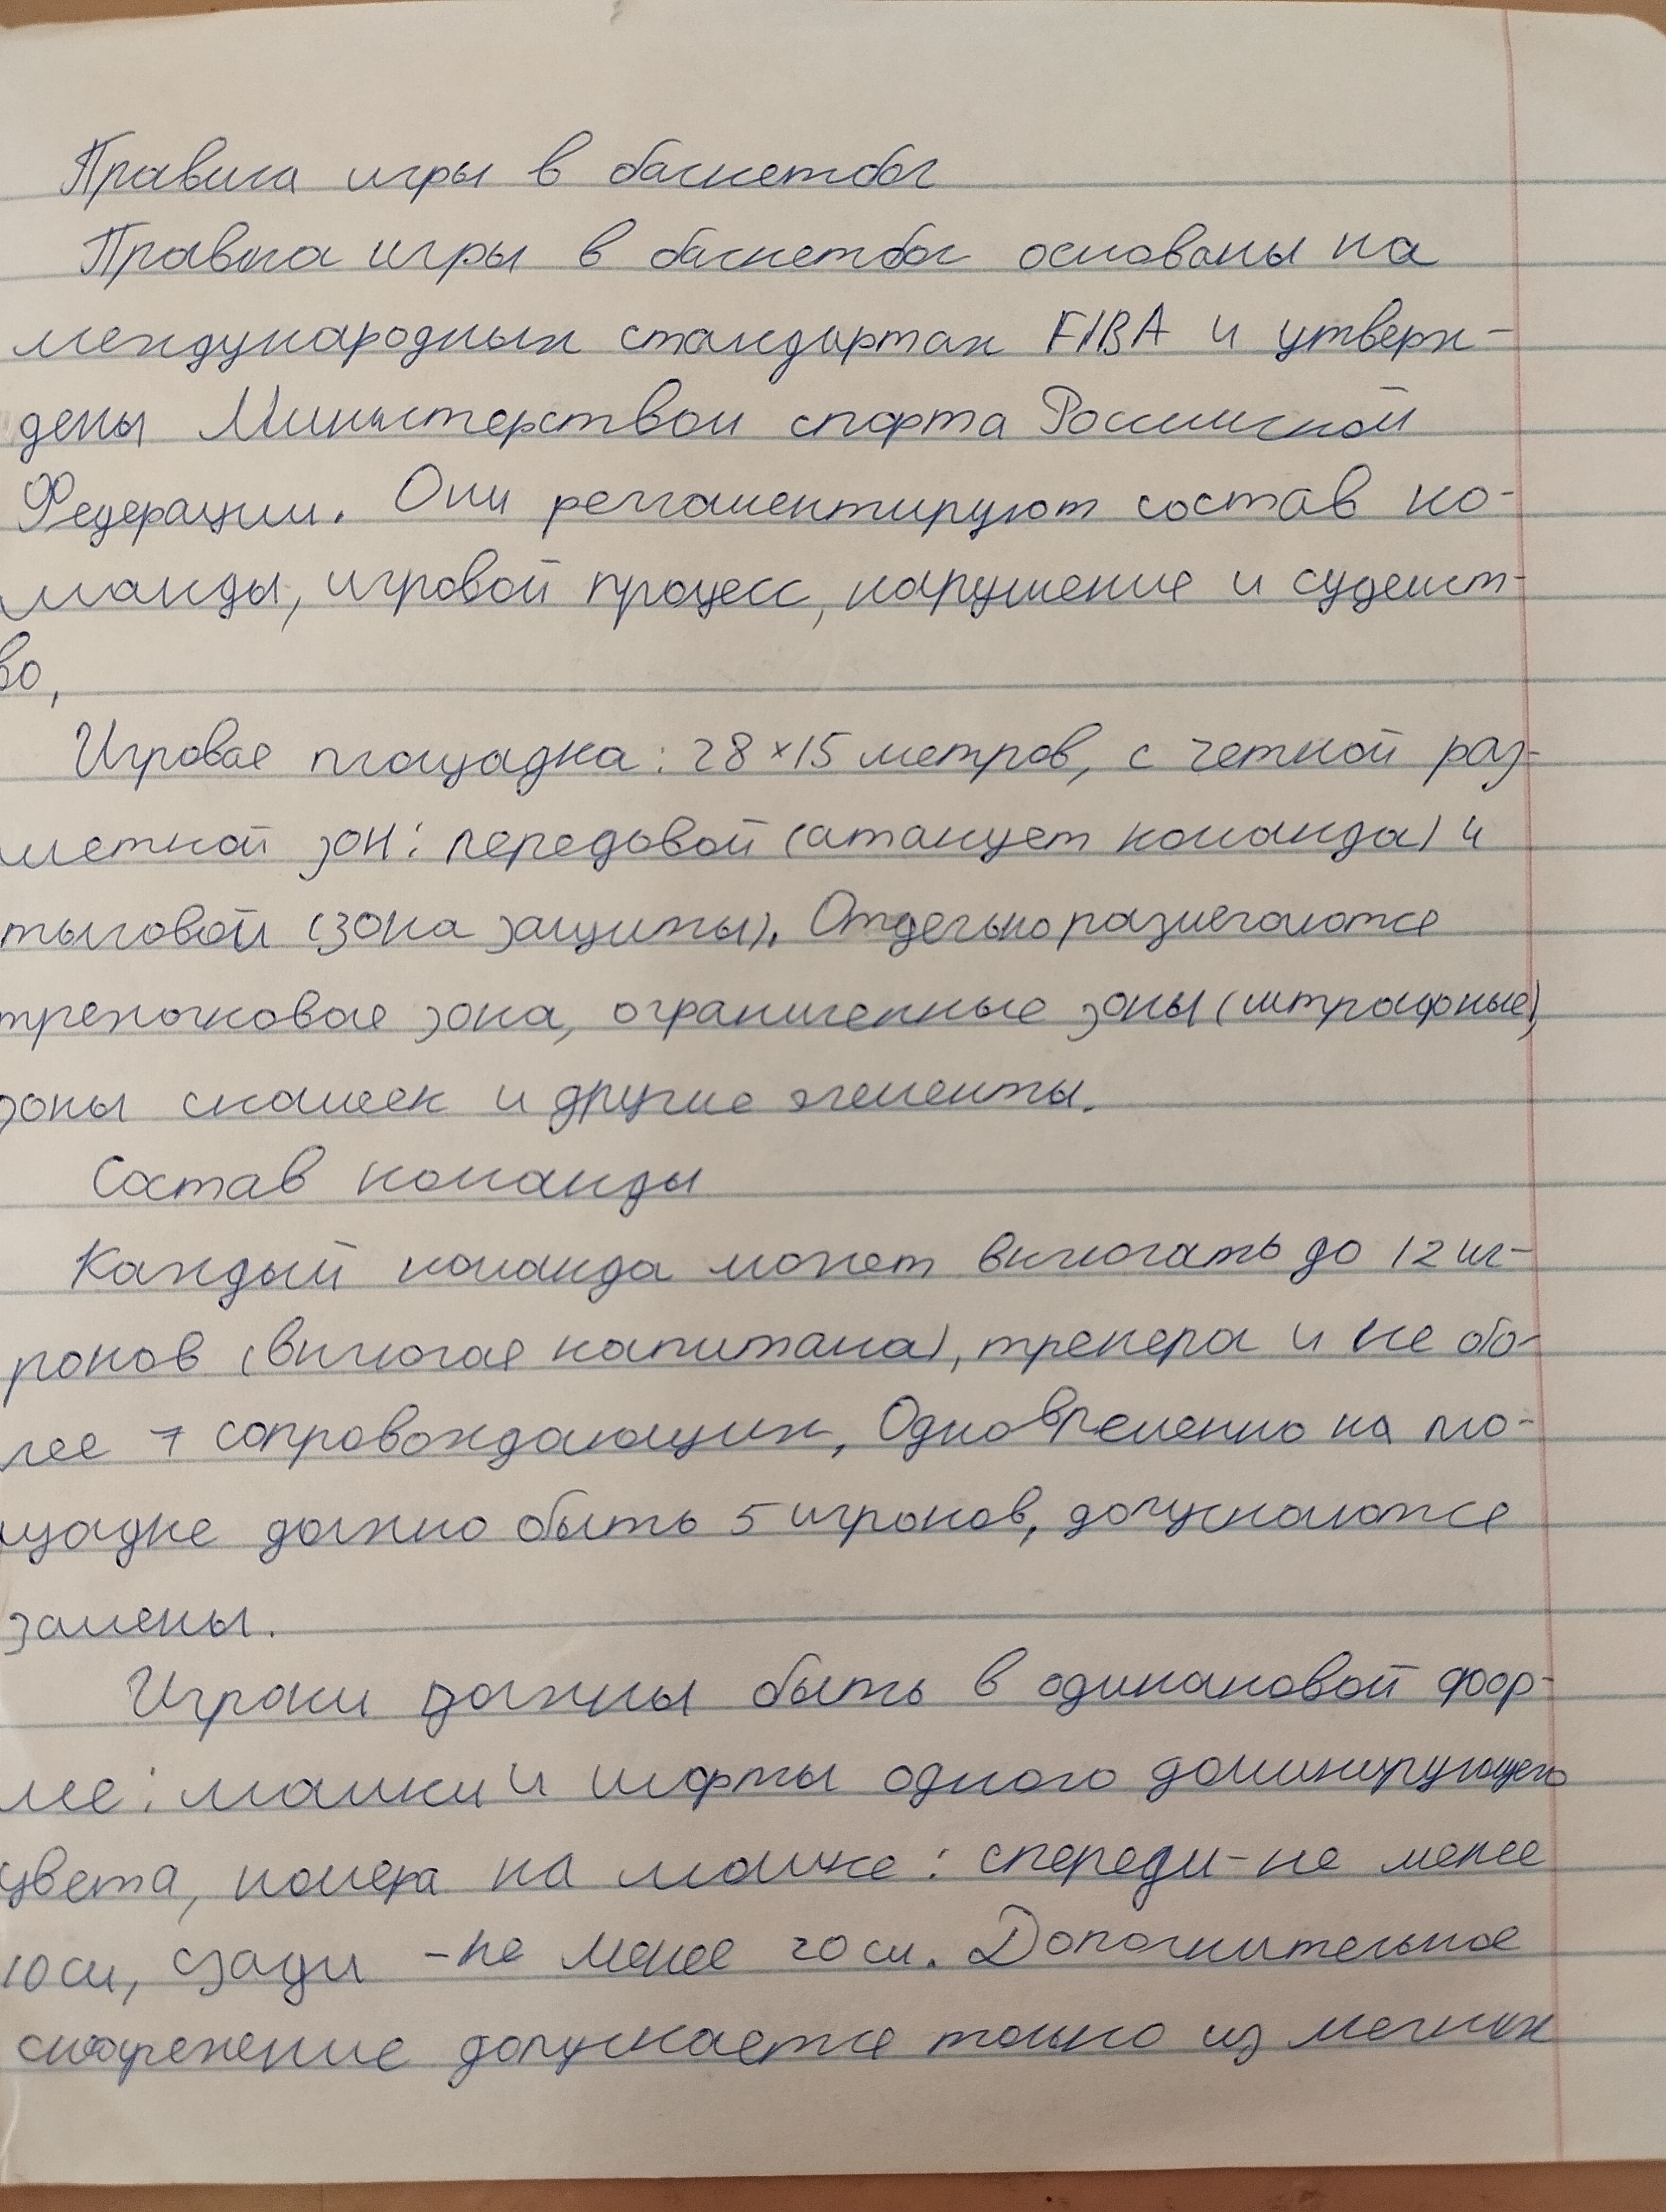 Правила игры в баскетбол
Правила игры в баскетбол основаны на
международных стандартах FIBA и утверж-
дены Министерством спорта Российской
Федерации. Они регламентируют состав ко-
манды, игровой процесс, нарушение и судейст-
во,
Игровая площадка: 28×15 метров, с четкой раз-
меткой зон: передовой (атакует команда) и
тыловой (зона защиты). Отдельно размечаются
трехочковая зона, ограниченные зоны (штрафные)
зоны скамеек и другие элементы.
Состав команды
Каждый команда может включать до 12 иг-
роков (включая капитана), тренера и не бо-
лее 7 сопровождающих, Одновременно на пло-
щадке должно быть 5 игроков, допускаются
замены.
Игроки должны быть в одинаковой фор-
ме: майки и шорты одного доминирующего
цвета, номера на майке: спереди - не менее
10 см, сзади - не менее 20 см. Дополнительное
снаряжение допускается только из мягких